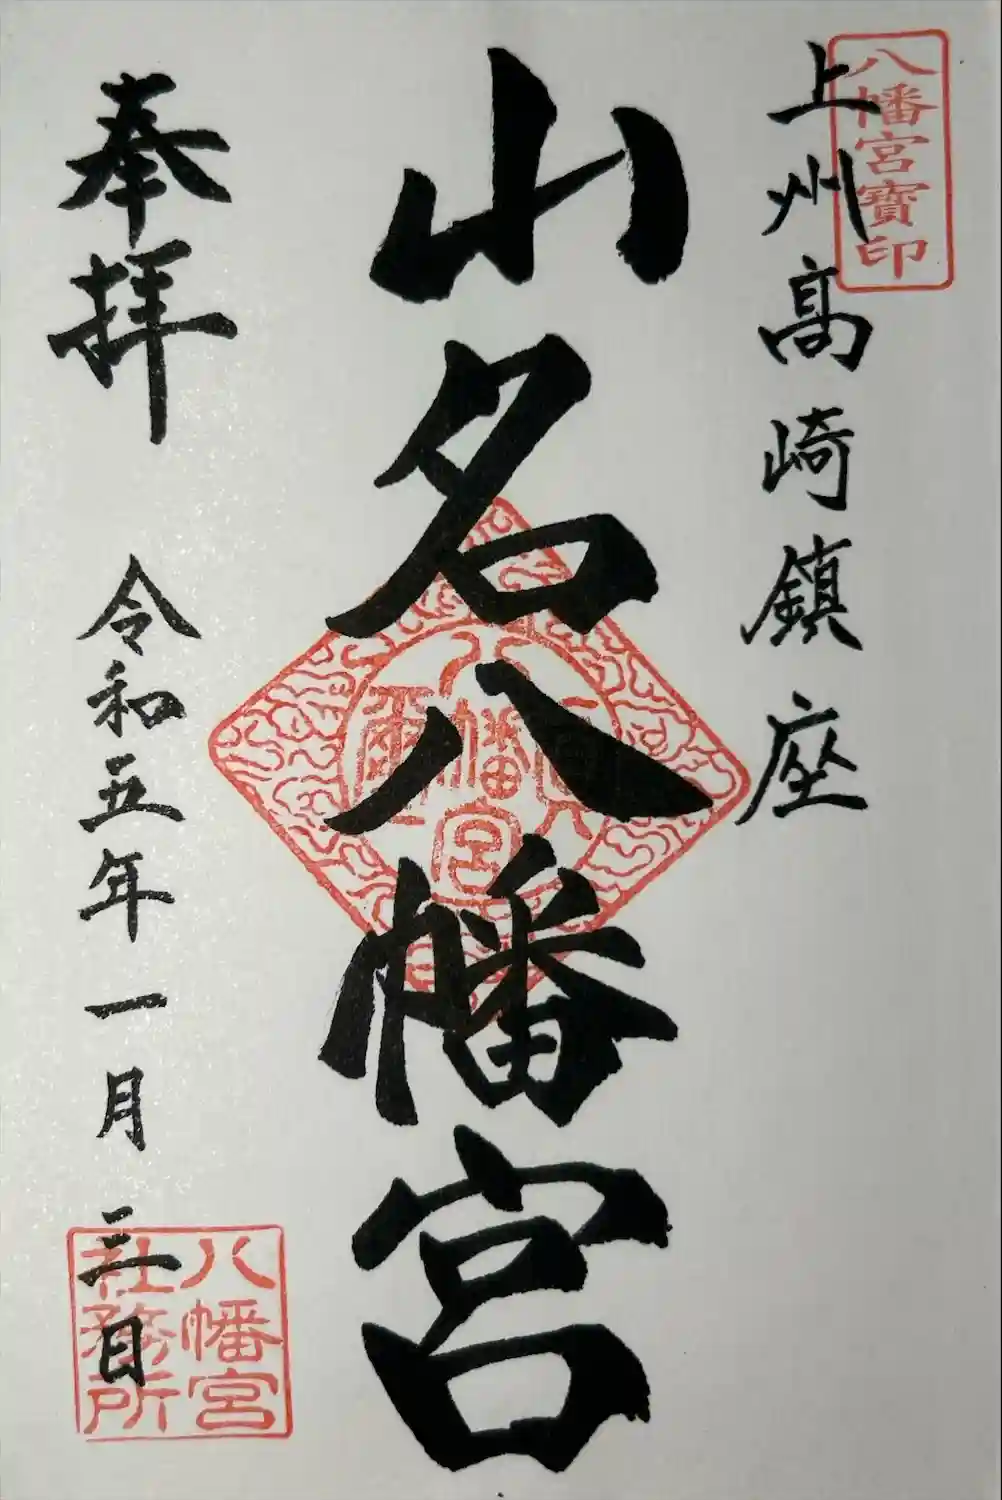 八幡宮寶印
上州高崎鎮座
山名八幡宮
八幡宮
奉拝
令和五年一月三日
八幡宮
社務所